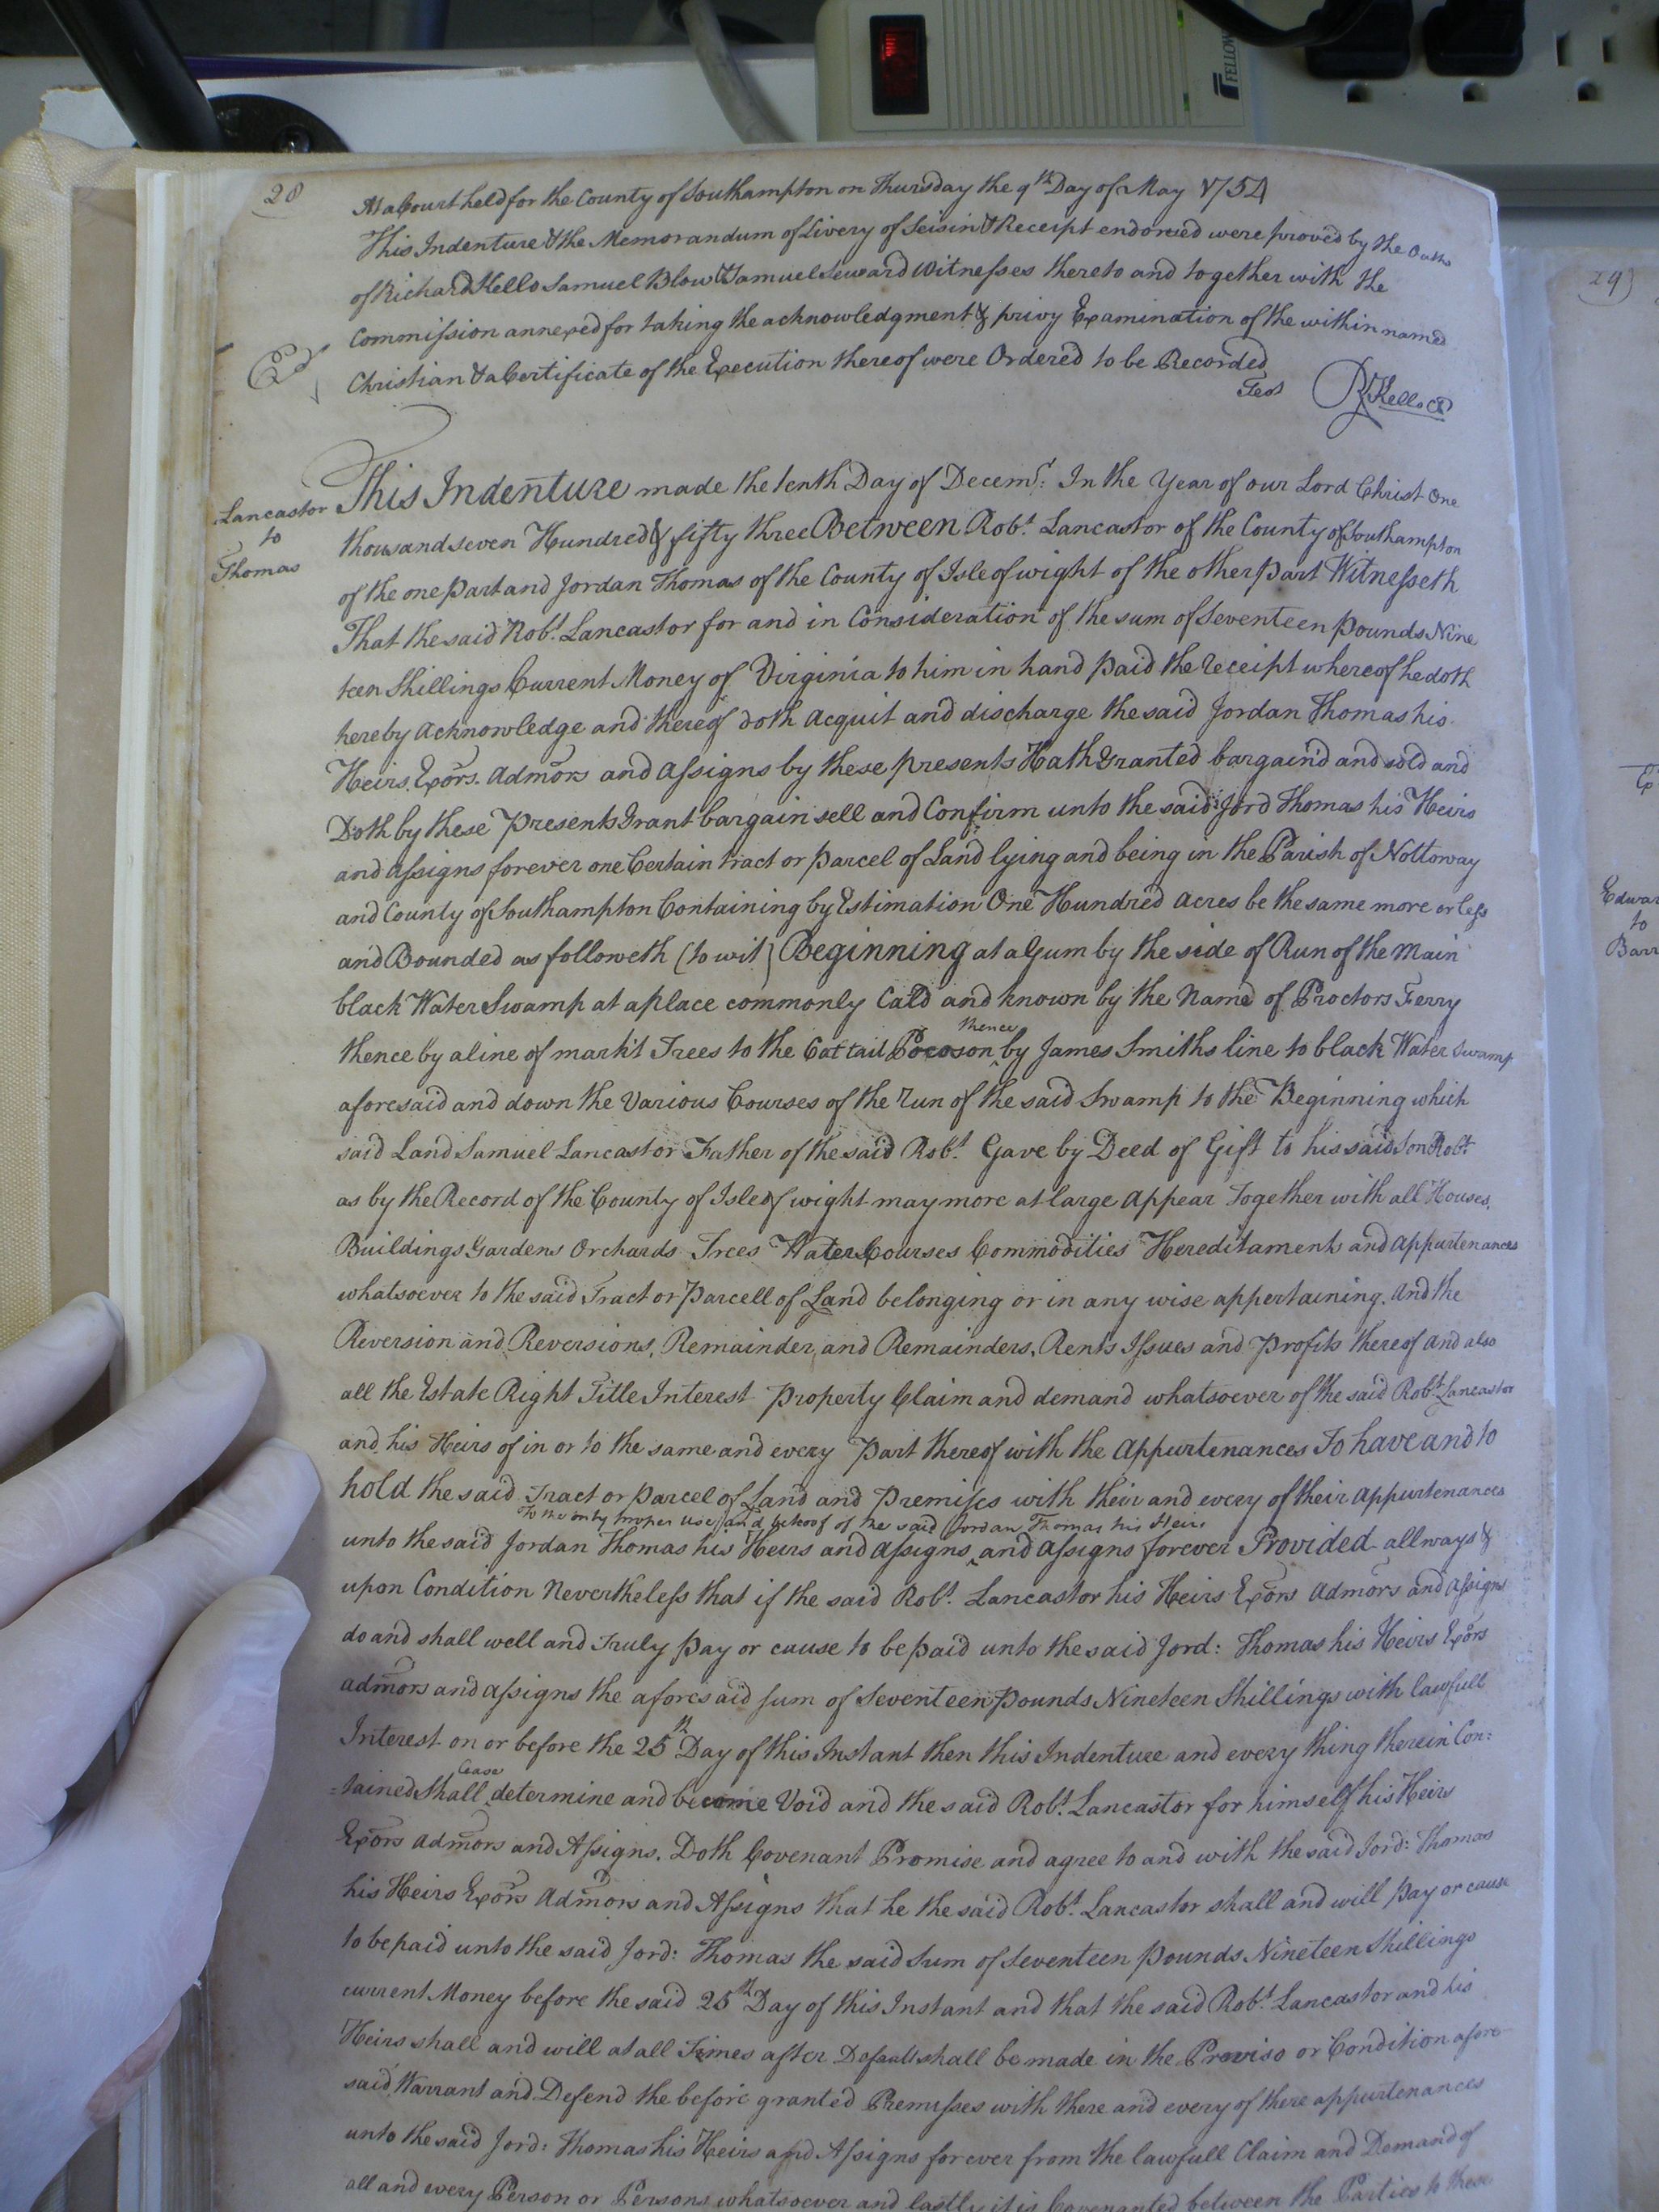 FELLOW
28
At a Court held for the County of Southampton on Thursday the 9th Day of May 1754
This Indenture & the Memorandum of Livery of Seisin & Receipt endorsed were proved by the Oaths
of Richard Kello Samuel Blow & Samuel Seward Witnesses thereto and together with the
Commission annexed for taking the acknowledgment & privy Examination of the within named
Christian & a Certificate of the Execution thereof were Ordered to be Recorded
Exd
Test R Kello Cl
Lancastor
to
Thomas
This Indenture made the tenth Day of Decemr: In the Year of our Lord Christ One
thousand seven Hundred & fifty three Between Robt. Lancastor of the County of Southampton
of the one part and Jordan Thomas of the County of Isle of wight of the other part Witnesseth
That the said Robt. Lancastor for and in Consideration of the sum of Seventeen pounds Nine
teen Shillings Current Money of Virginia to him in hand paid the receipt whereof he doth
hereby acknowledge and thereof doth acquit and discharge the said Jordan Thomas his
Heirs Exors. Admors and assigns by these presents Hath Granted bargain'd and sold and
Doth by these Presents Grant bargain sell and Confirm unto the said Jord Thomas his Heirs
and assigns forever one Certain tract or parcel of Land lying and being in the Parish of Nottoway
and County of Southampton Containing by Estimation One Hundred acres be the same more or less
and Bounded as followeth (to wit) Beginning at a Gum by the side of Run of the Main
black Water Swamp at a place commonly Cald and known by the Name of Proctors Ferry
thence by a line of markt Trees to the Cattail Pocoson thence by James Smiths line to black Water Swamp
aforesaid and down the Various Courses of the run of the said Swamp to the Beginning which
said Land Samuel Lancastor Father of the said Robt. Gave by Deed of Gift to his said Son Robt.
as by the Record of the County of Isle of wight may more at large appear Together with all Houses,
Buildings Gardens Orchards Trees Water Courses Commodities Hereditaments and appurtenances
whatsoever to the said Tract or Parcell of Land belonging or in any wise appertaining. And the
Reversion and Reversions, Remainder, and Remainders, Rents Issues and Profits thereof and also
all the Estate Right Title Interest Property Claim and demand whatsoever of the said Robt. Lancastor
and his Heirs of in or to the same and every Part thereof with the Appurtenances To have and to
hold the said Tract or parcel of Land and Premises with their and every of their appurtenances
unto the said Jordan Thomas his Heirs and assigns To the only proper use and behoof of the said Jordan Thomas his Heirs and assigns forever Provided allways &
upon Condition Nevertheless that if the said Robt. Lancastor his Heirs Exors Admors and assigns
do and shall well and Truly pay or cause to be paid unto the said Jord: Thomas his Heirs Exors
admors and assigns the aforesaid sum of Seventeen Pounds Nineteen Shillings with lawfull
Interest on or before the 25th Day of this Instant then this Indenture and every thing therein Con:
=tained Shall Cease determine and become Void and the said Robt. Lancastor for himself his Heirs
Exors Admors and Assigns. Doth Covenant Promise and agree to and with the said Jord: Thomas
his Heirs Exors Admors and Assigns that he the said Robt. Lancastor shall and will pay or cause
to be paid unto the said Jord: Thomas the said Sum of Seventeen pounds Nineteen Shillings
current Money before the said 25th Day of this Instant and that the said Robt. Lancastor and his
Heirs shall and will at all Times after Default shall be made in the Proviso or Condition afore
said, Warrant and Defend the before granted Premisses with there and every of there appurtenances
unto the said Jord: Thomas his Heirs and Assigns forever from the lawfull Claim and Demand of
all and every Person or Persons whatsoever and lastly it is Covenanted between the Parties to these
29)
Edwar
to
Barr